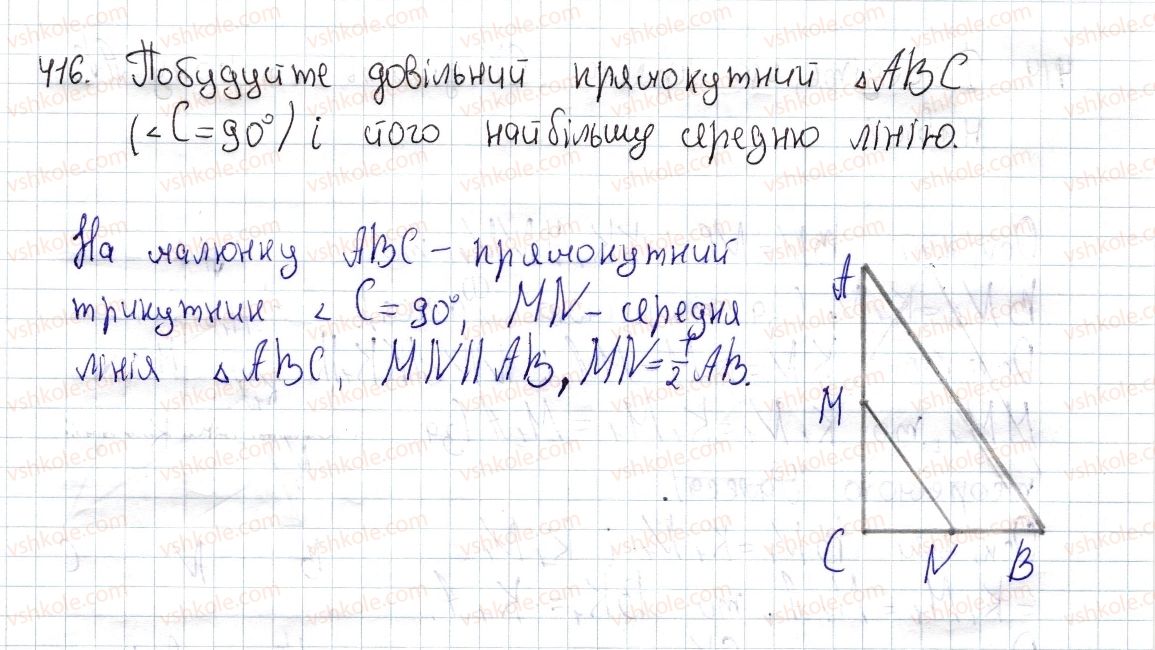 416. Побудуйте довільний прямокутний △ABC
(∠C=90°) і його найбільшу середню лінію.
На малюнку ABC – прямокутний
трикутник ∠C=90°, MN – середня
лінія △ABC, MN || AB, MN=1/2 AB.
A
M
C N B
vshkole.com